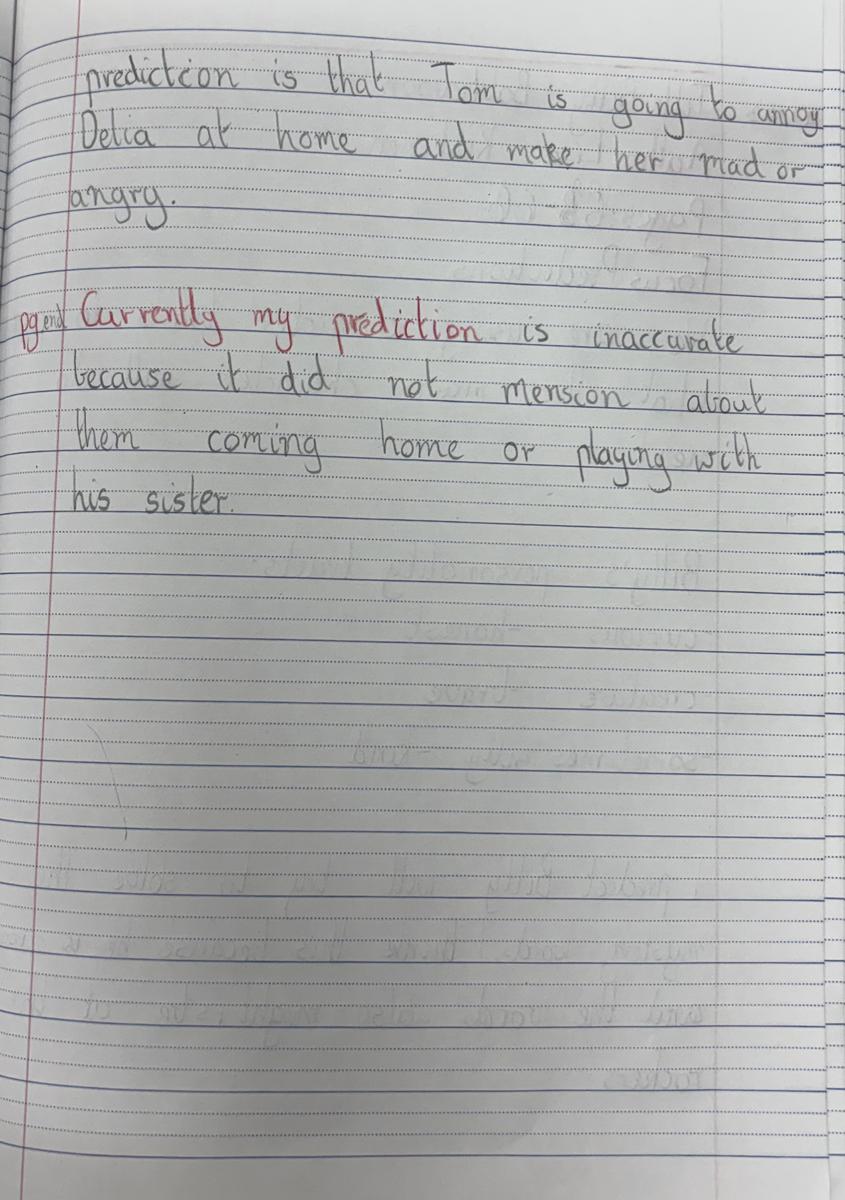 prediction is that Tom is going to annoy
Delia at home and make her mad or
angry.
pg end Currently my prediction is inaccurate
because it did not mension about
them coming home or playing with
his sister.